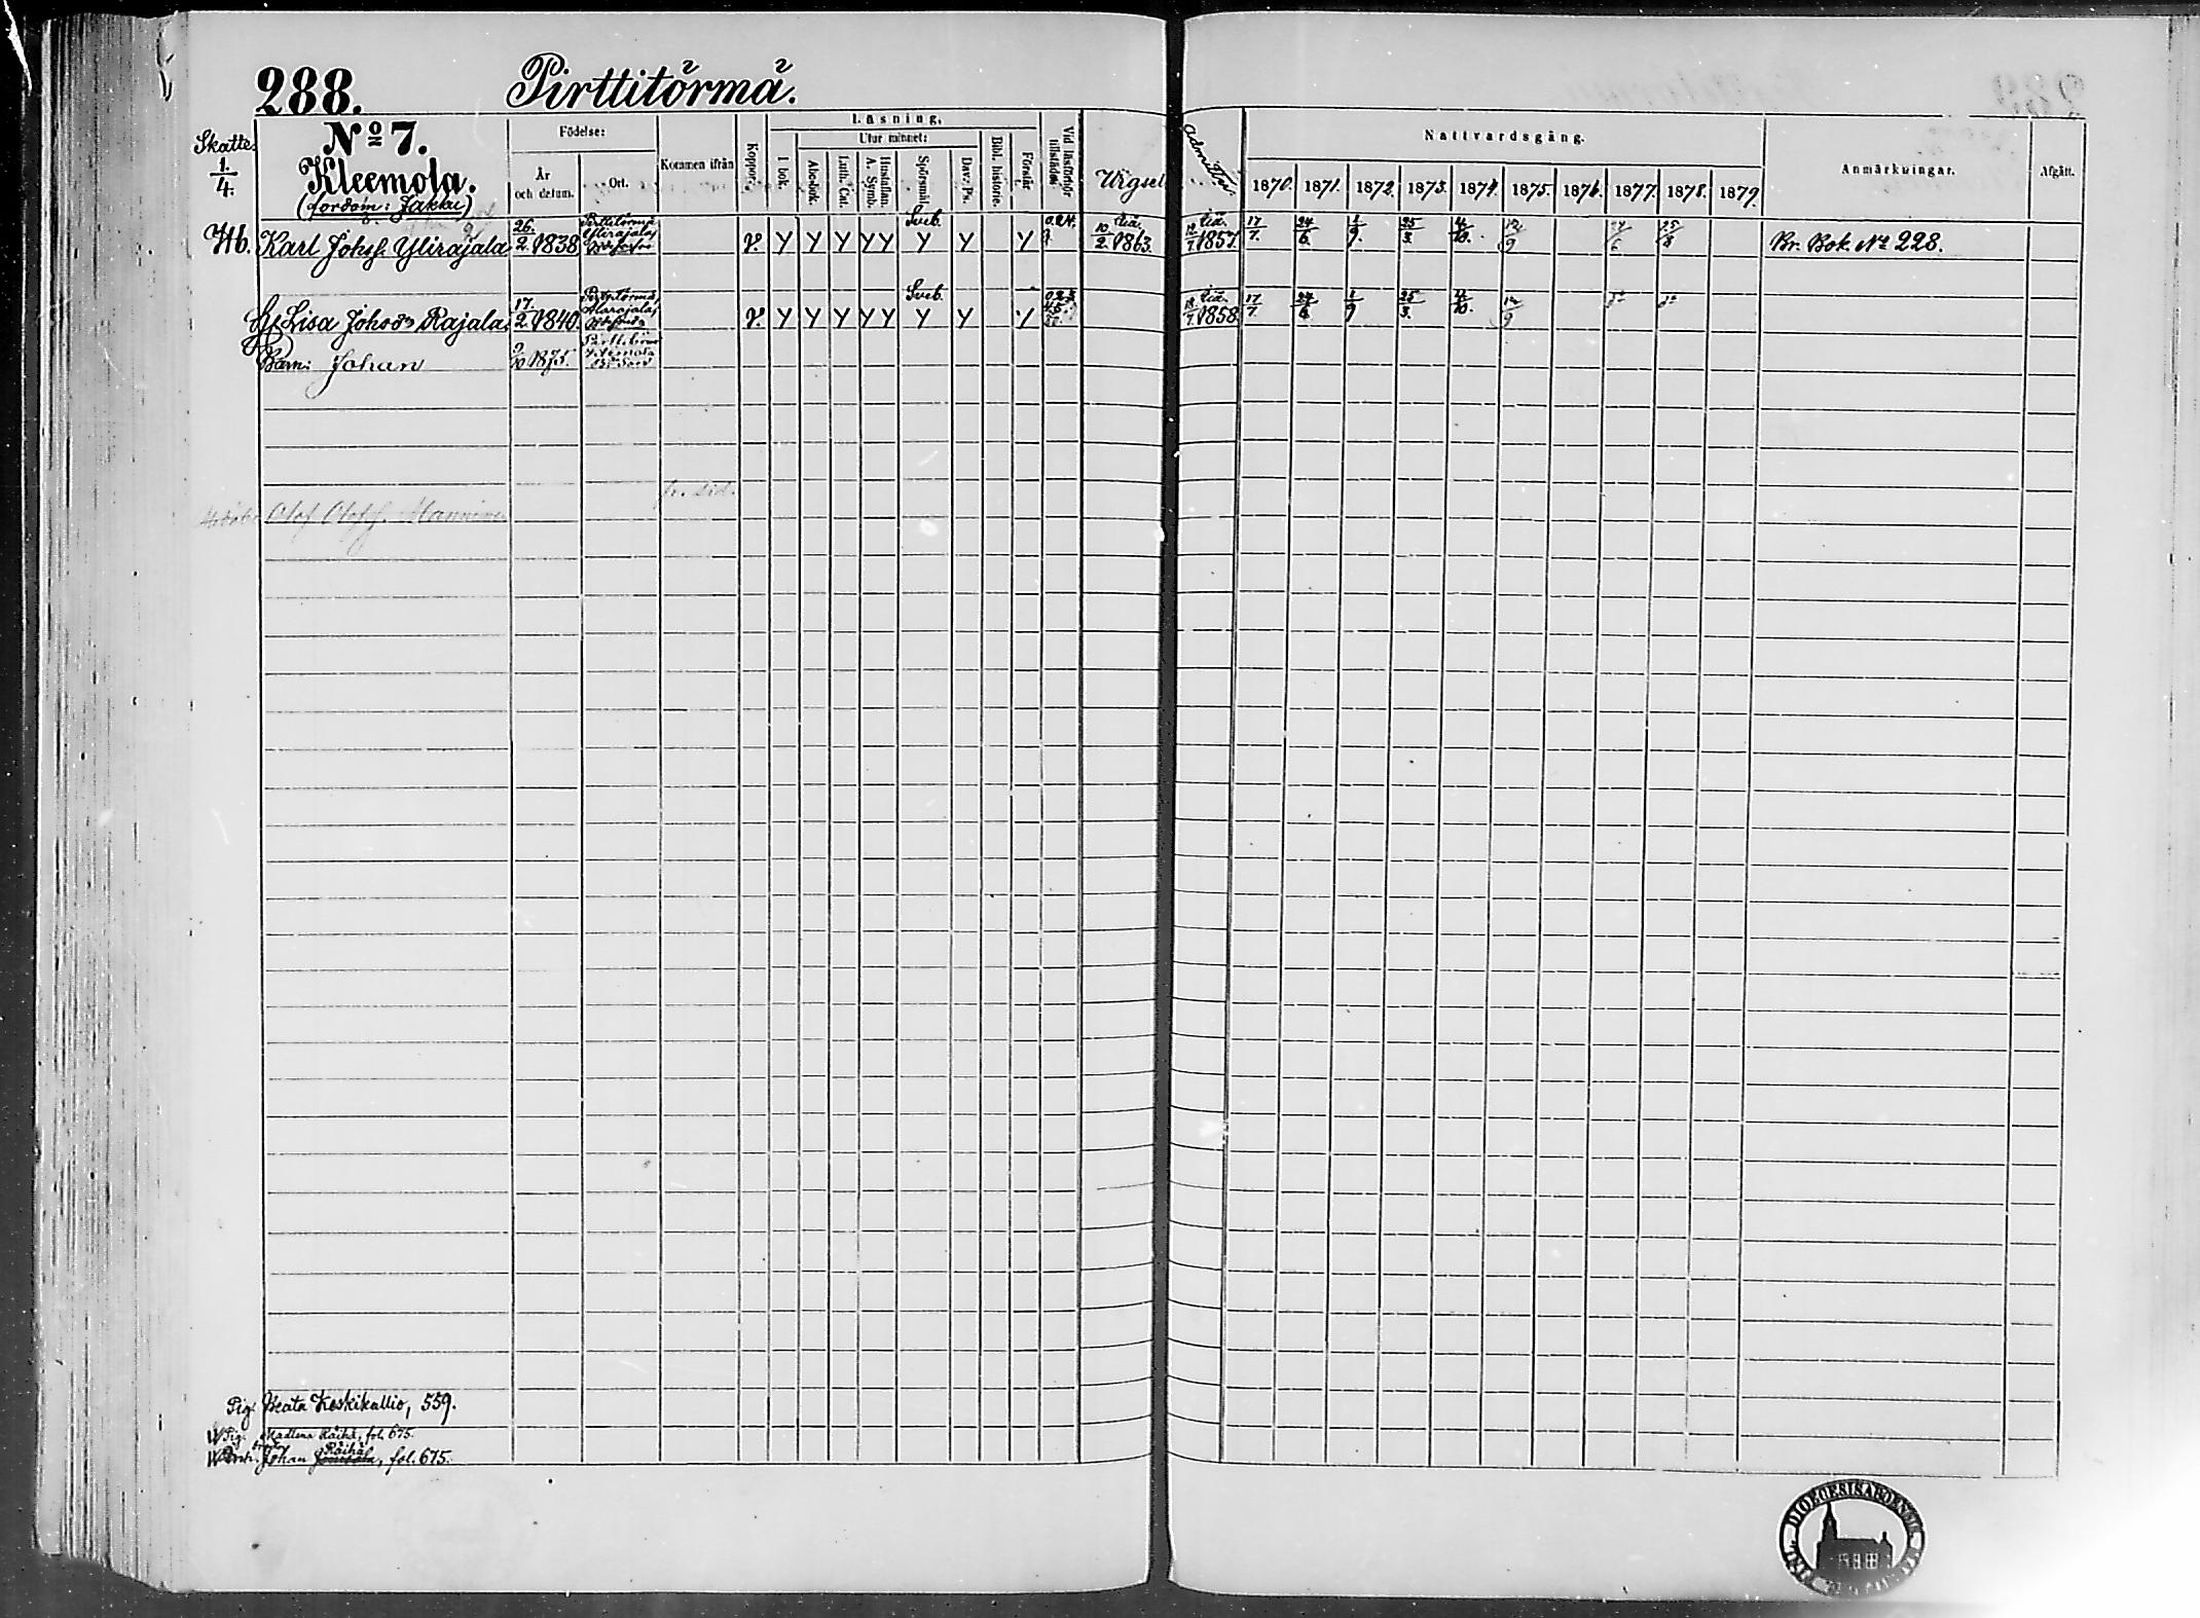 288. Pirttitörmä.
Skatte 1/4.
No 7.
Kleemola.
(fordom: Jakku)
Födelse:
År och datum.
Ort.
Kommen ifrån
Koppor.
Läsning.
I bok.
Utur minnet:
Abc-bok.
Luth. Cat.
Hustaflan. A. Symb.
Spörsmål.
Dav. Ps.
Bibl. historie.
Förstår
Vid läsförhör tillstädes
Vigsel
Admitter.
Nattvardsgång.
1870. 1871. 1872. 1873. 1874. 1875. 1876. 1877. 1878. 1879.
Anmärkningar.
Afgått.
Hb. Karl Johsf. Ylirajala 26/2 1838 Pirttitörmä Ylirajala v. y y y y y Sveb. y y y 10/2 1863. 1857. 17/7. 24/6. 1/9. 25/3. 4/10. 12/9 25/8 Br. Bok. No 228.
H. Lisa Johsdr Rajala 17/2 1840. Pirttitörmä Alarajala v. y y y y y Sveb. y y y 1858 17/7. 24/6. 1/9 25/3. 4/10. 12/9
Barn: Johan 9/10 1875.
Olof Olofsf. Manninen fr. sid.
Pig. Beata Keskikallio, 559.
Pig. Madlena Räihä, fol. 675.
Johan Räihä, fol. 675.
DIOECESIS ABOENSIS